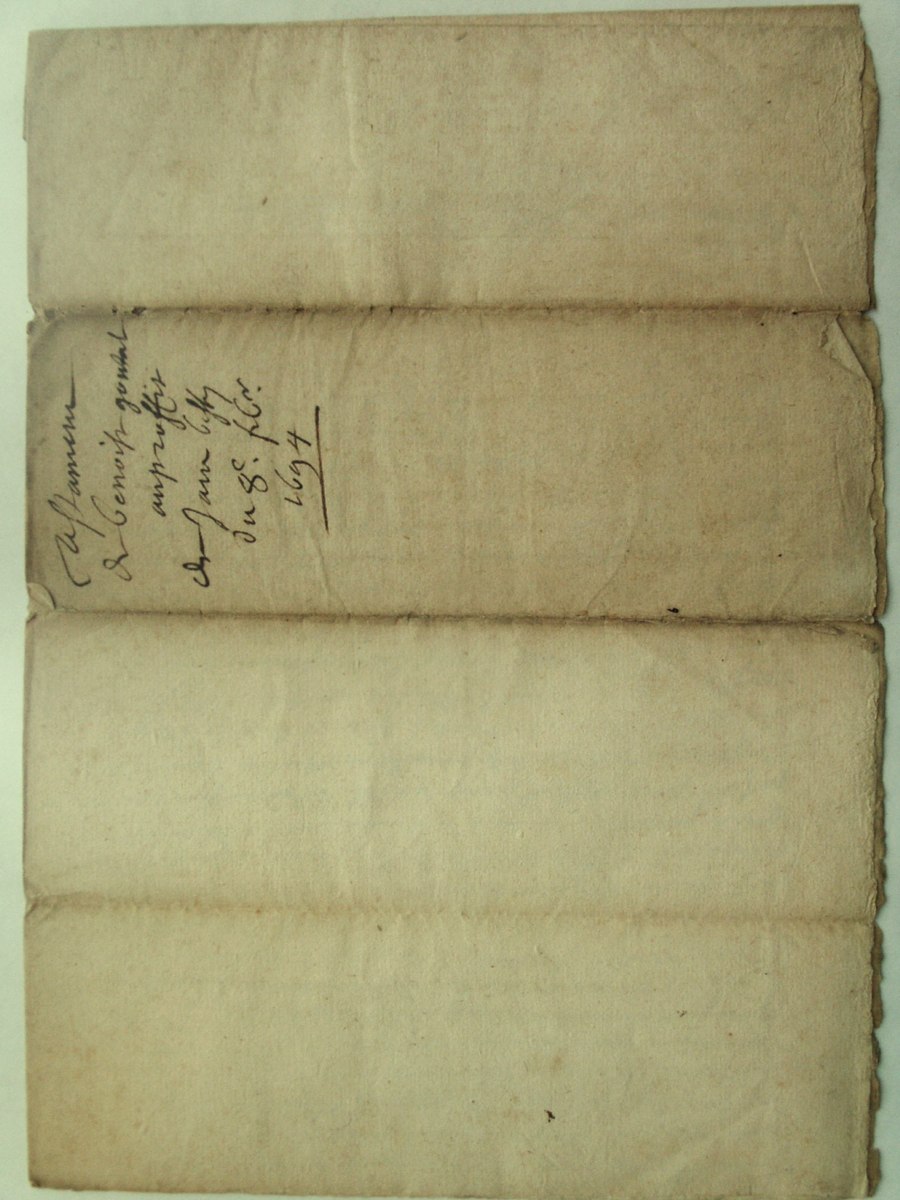 Testament
de benoist gonnet
au proffit
de Jane
du 8e. fbr.
1694